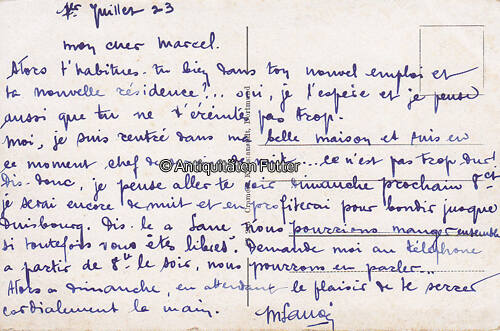 1er Juillet 23
mon cher Marcel.
Alors t'habitues-tu bien dans ton nouvel emploi et
ta nouvelle résidence?... oui, je l'espère et je pense
aussi que tu ne t'éreintes pas trop.
Moi, je suis rentré dans ma belle maison et suis en
ce moment chef de nuit... ce n'est pas trop dur!
Dis-donc, je pense aller te voir dimanche prochain 8ct
je serai encore de nuit et en profiterai pour bondir jusque
Duisbourg. Dis-le a nous pourrions manger ensemble
si toutefois vous êtes libres. Demande moi au téléphone
a partir de 8h le soir, nous pourrons en parler...
Alors a dimanche, en attendant le plaisir de te serrer
cordialement la main.
© Antiquitäten Fütter
Dortmund